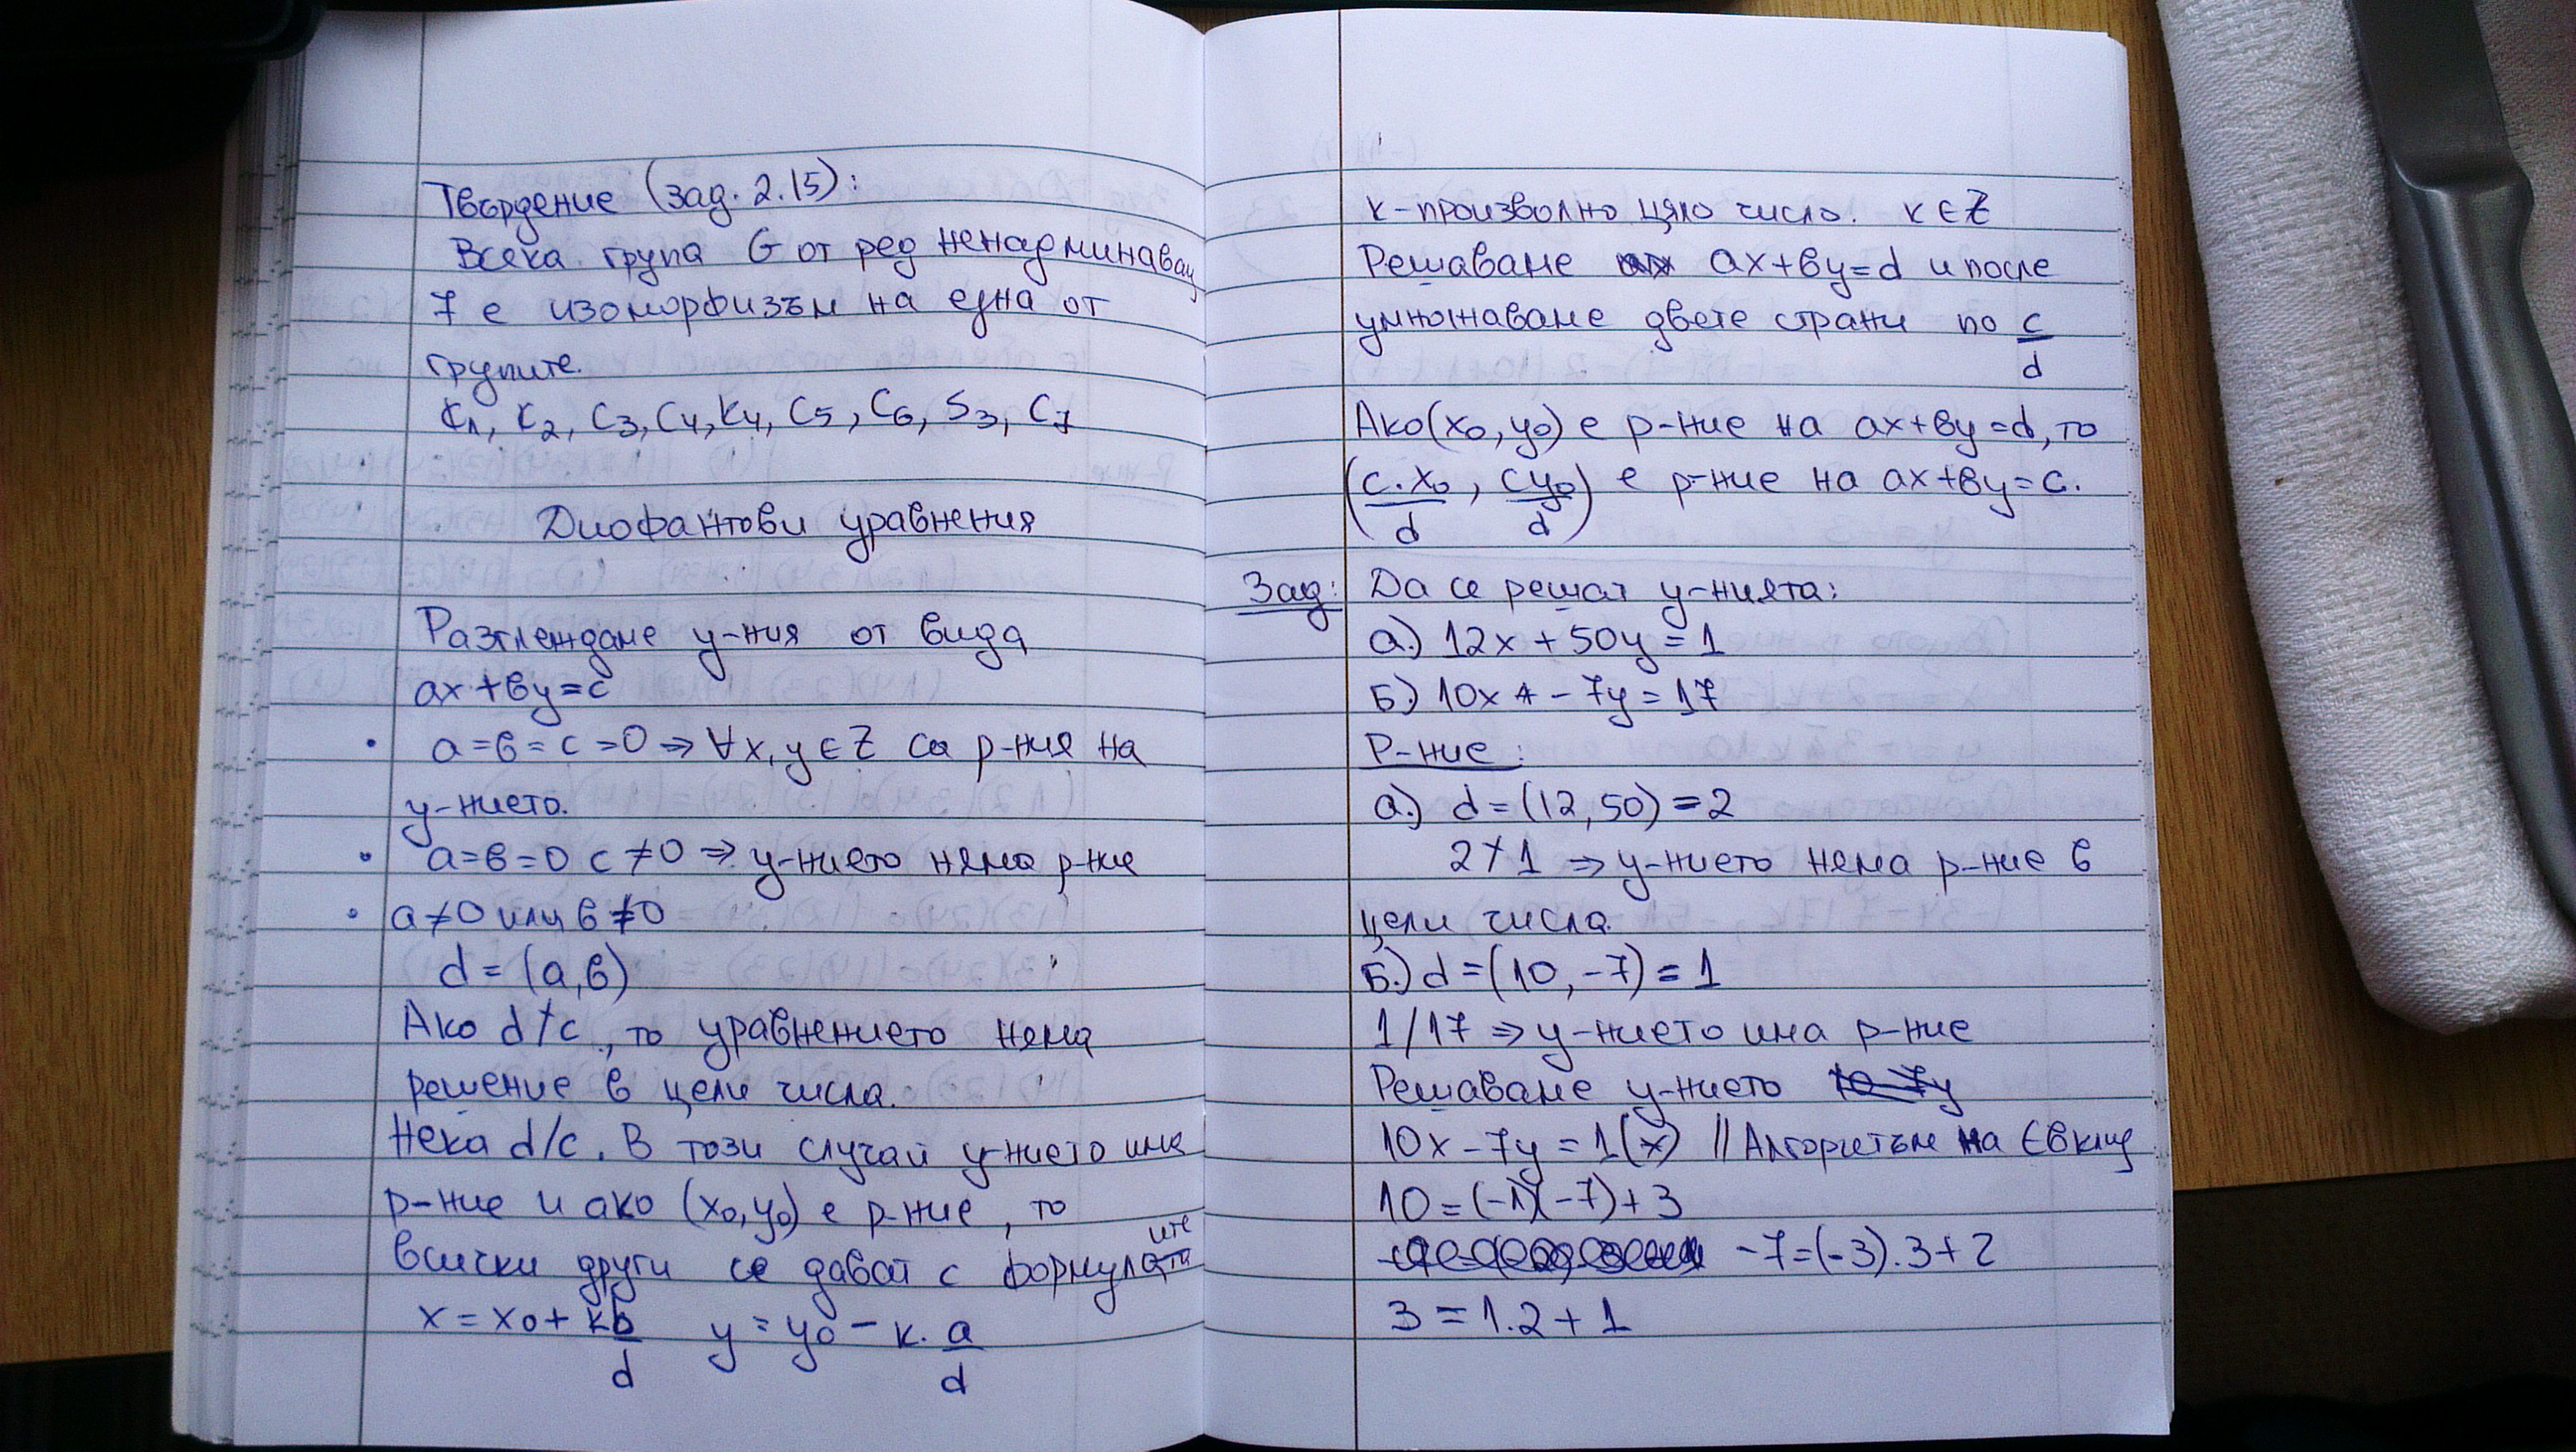 Твърдение (зад. 2.15):
Всяка група G от ред ненадминаващ
7 е изоморфизъм на една от
групите.
C₁, C₂, C₃, C₄, K₄, C₅, C₆, S₃, C₇
Диофантови уравнения
Разглеждаме у-ния от вида
ax+by=c
• a=b=c=0 ⇒ ∀x,y∈Z са р-ния на
у-нието.
• a=b=0 c≠0 ⇒ у-нието няма р-ние
• a≠0 или b≠0
d=(a,b)
Ако d∤c, то уравнението няма
решение в цели числа.
Нека d/c. В този случай у-нието има
р-ние и ако (x₀,y₀) е р-ние, то
всички други се дават с формулите
x=x₀+k b/d y=y₀-k. a/d
k-произволно цяло число. k∈Z
Решаваме ax+by=d и после
умножаваме двете страни по c/d
Ако (x₀,y₀) е р-ние на ax+by=d, то
(c.x₀/d, cy₀/d) е р-ние на ax+by=c.
Зад: Да се решат у-нията:
а.) 12x+50y=1
Б.) 10x-7y=17
Р-ние:
а.) d=(12,50)=2
2∤1 ⇒ у-нието няма р-ние в
цели числа.
Б.) d=(10,-7)=1
1/17 ⇒ у-нието има р-ние
Решаваме у-нието
10x-7y=1(*) //Алгоритъм на Евклид
10=(-1)(-7)+3
-7=(-3).3+2
3=1.2+1